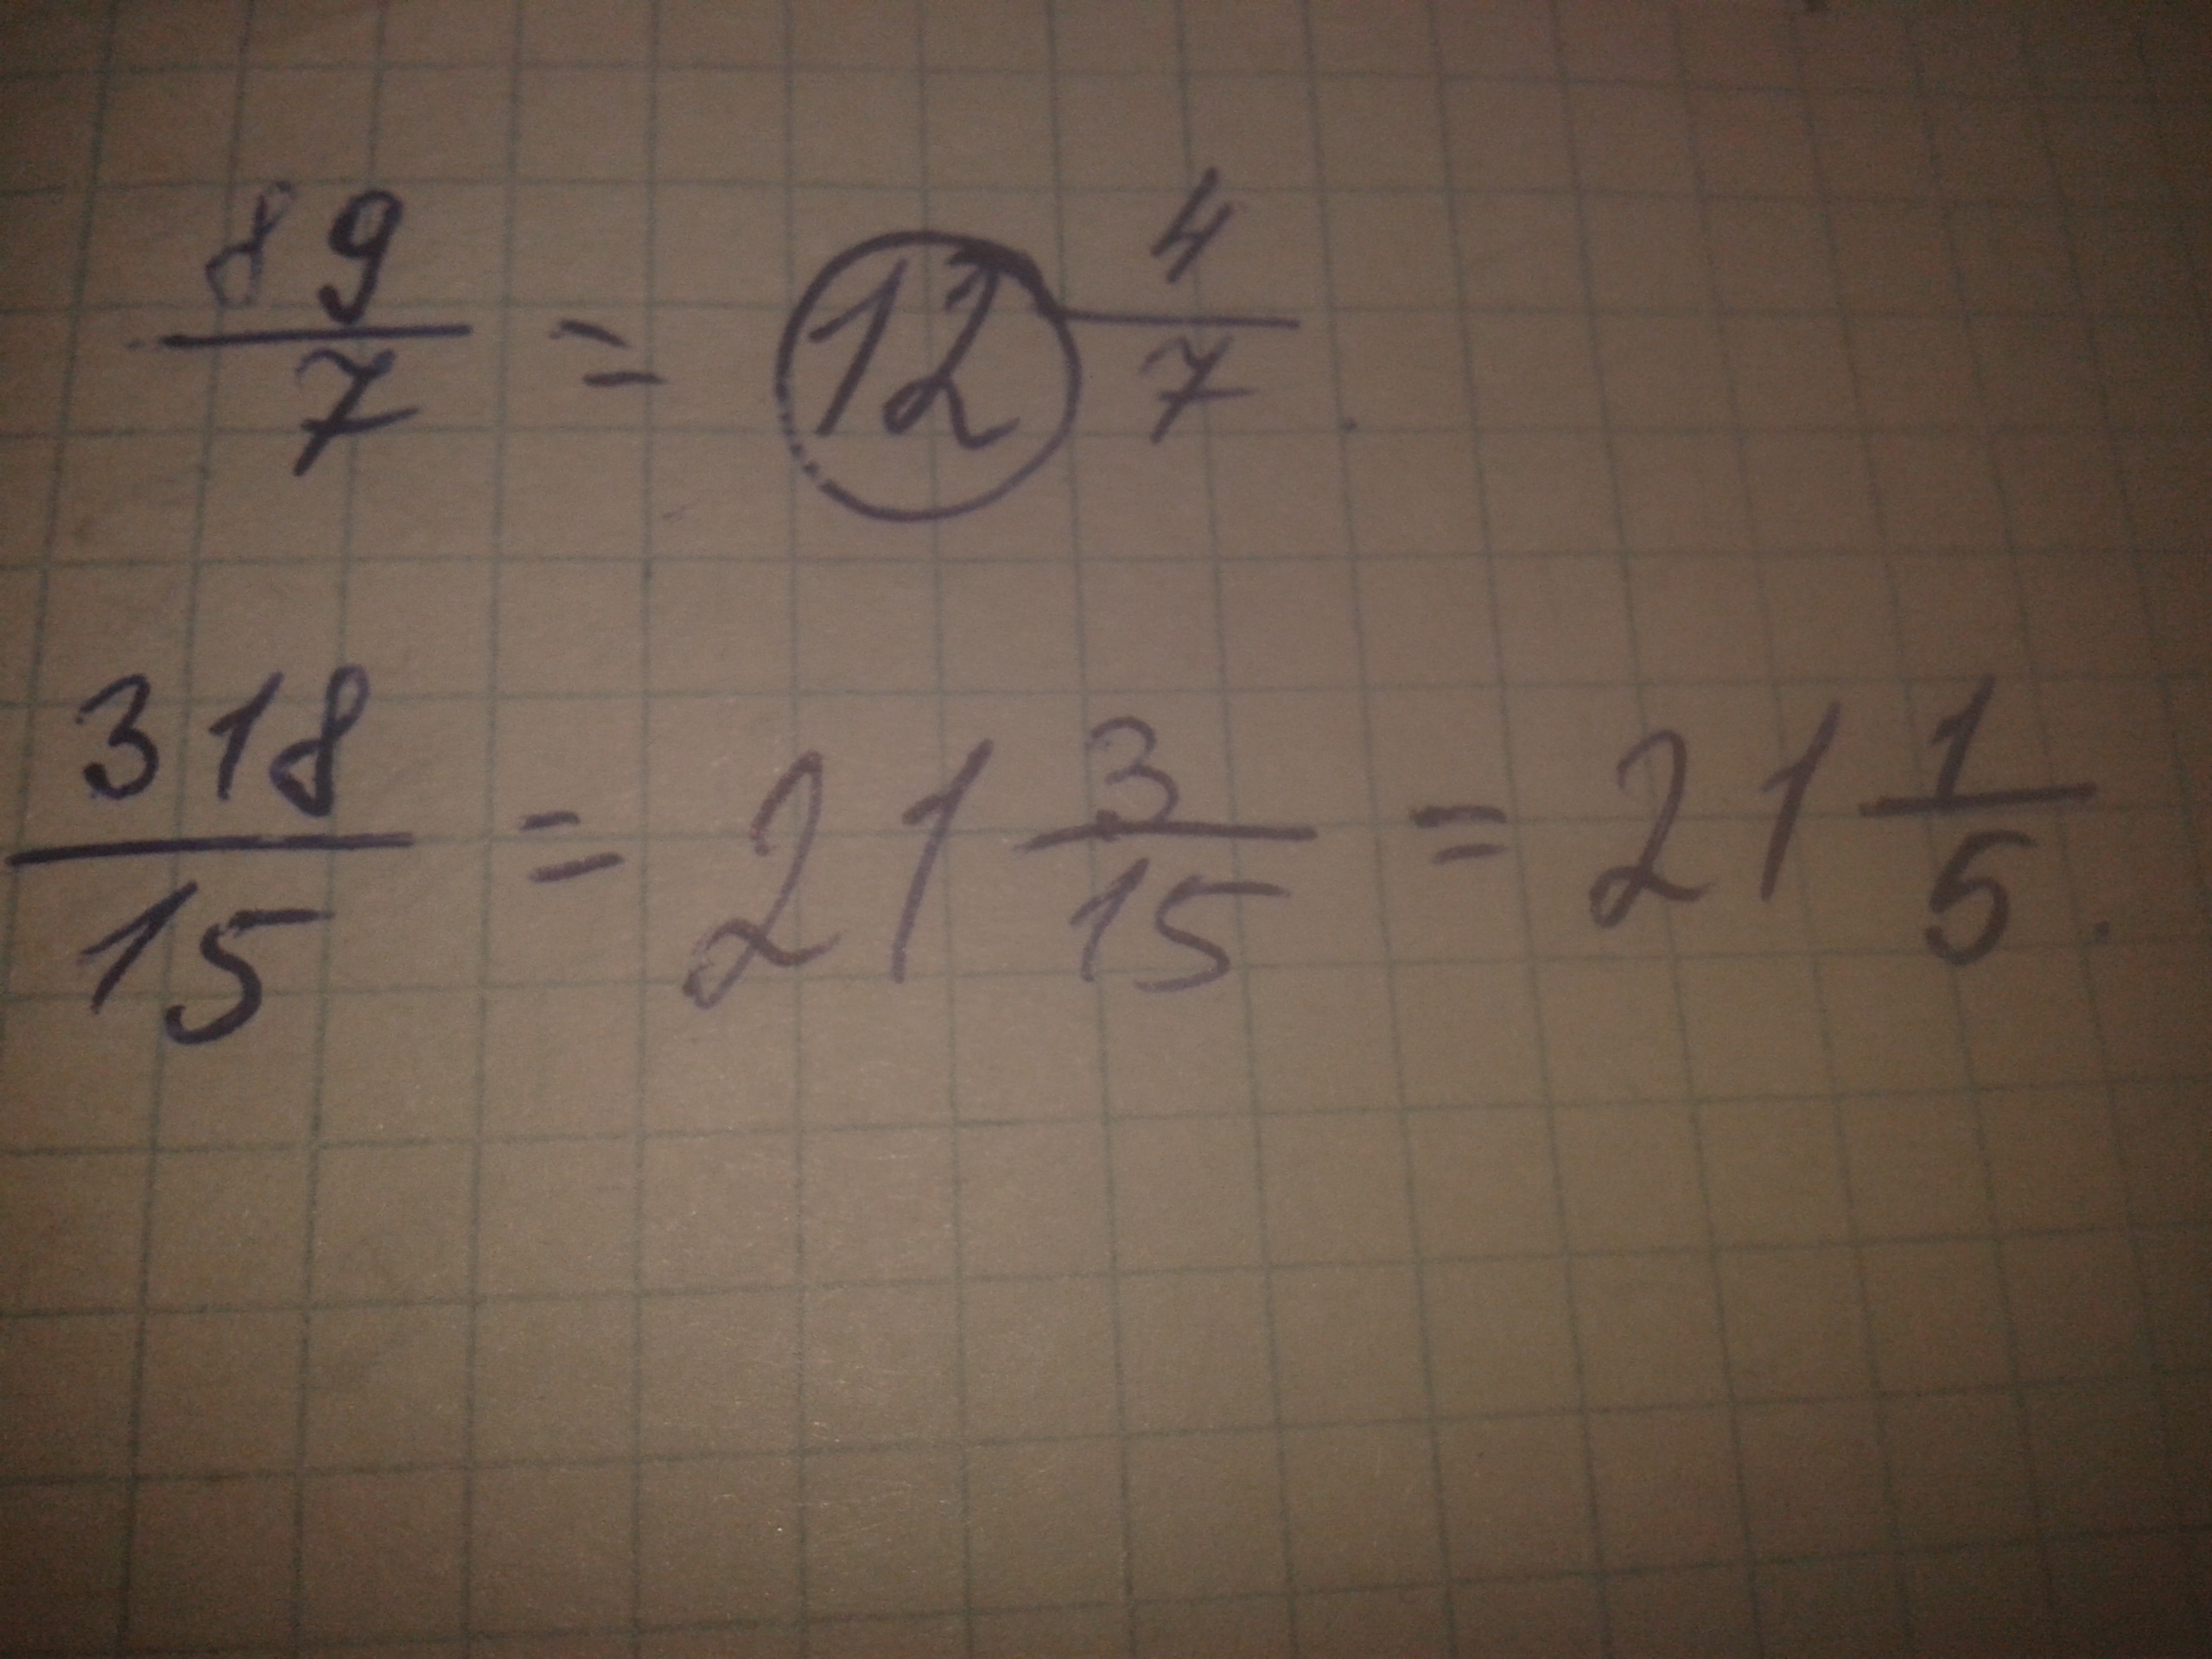 89/7 = 12 4/7.
318/15 = 21 3/15 = 21 1/5.